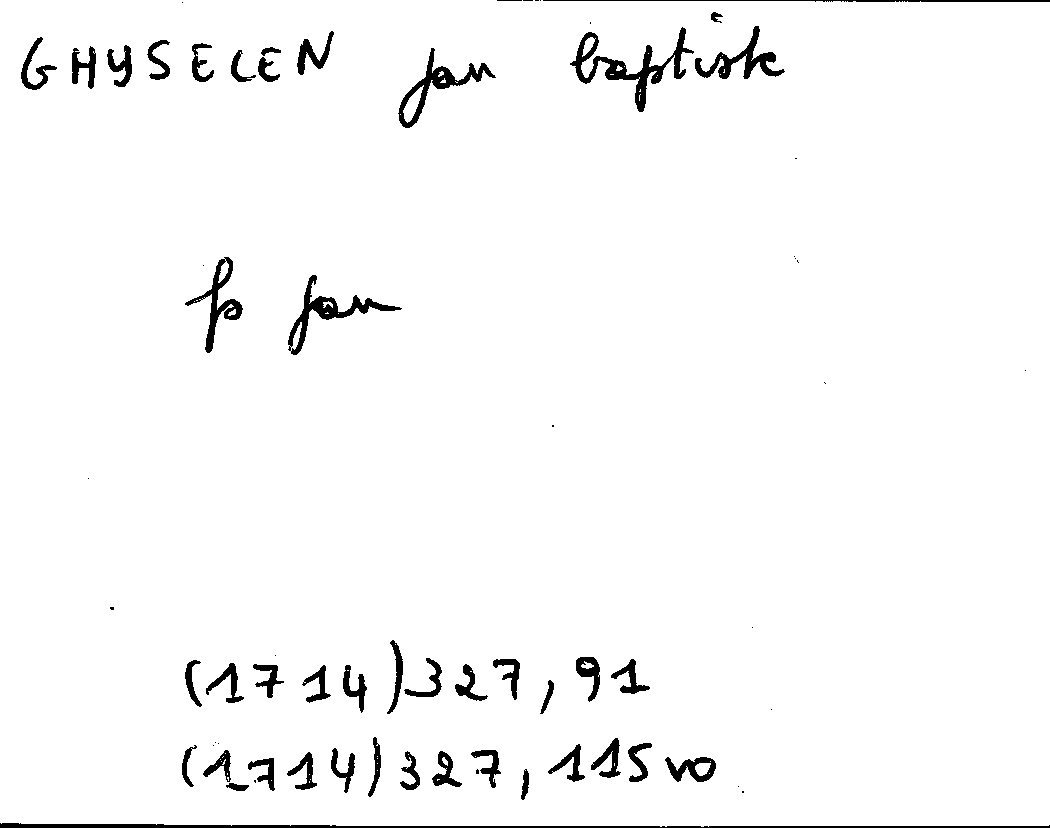 GHYSELEN jan baptiste
fs jan
(1714) 327, 91
(1714) 327, 115 vo